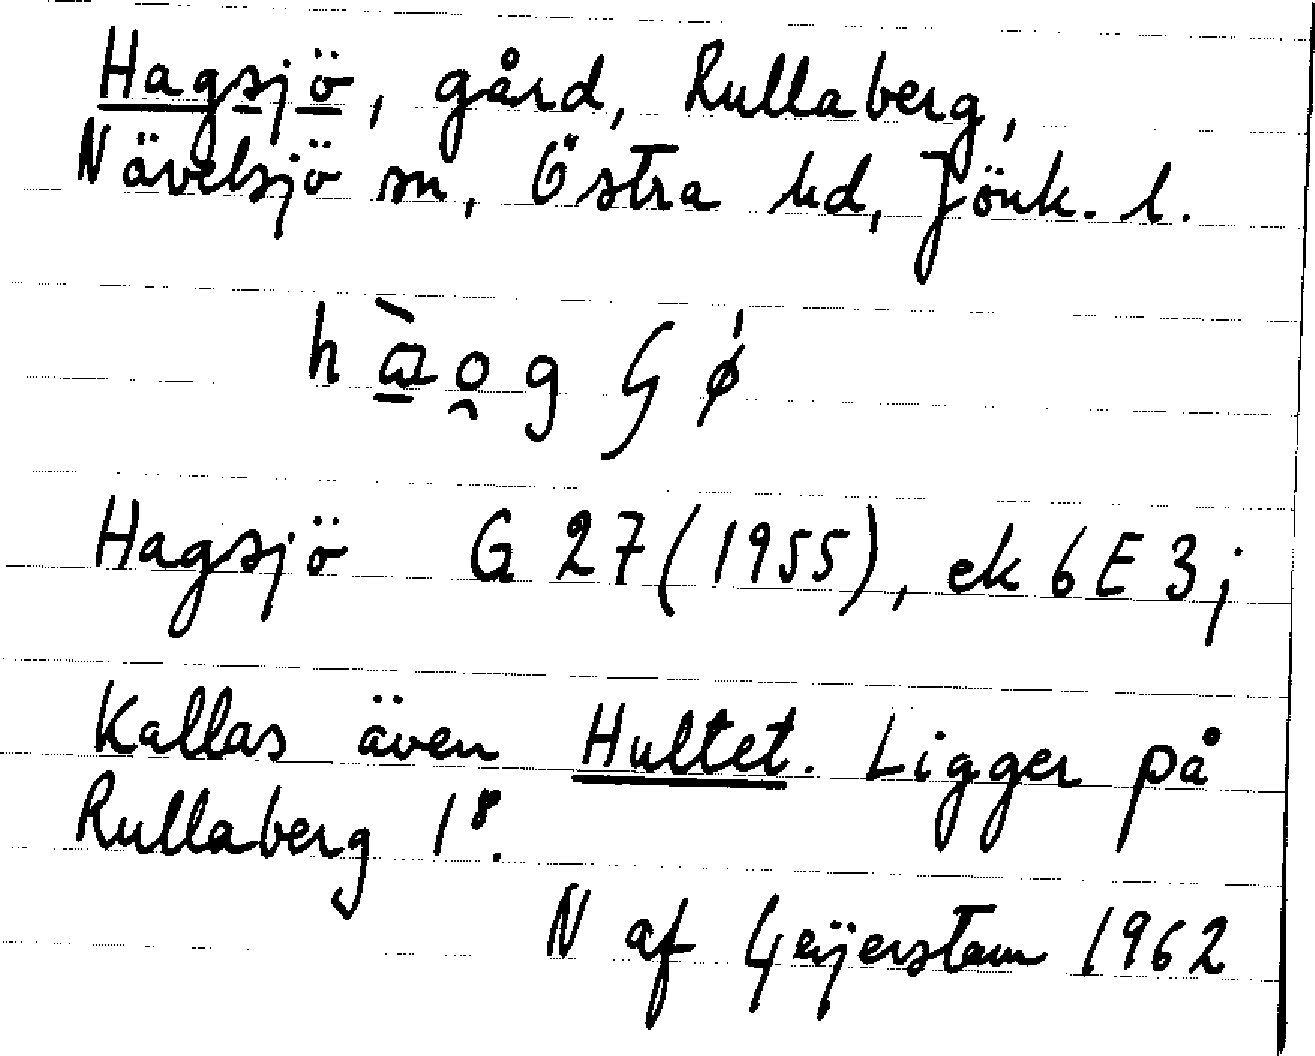 Hagsjö, gård, Rullaberg,
Nävelsjö sn, Östra hd, Jönk. l.
Hagsjö G 27 (1955), ek 6E3j
Kallas även Hultet. Ligger på
Rullaberg 1⁸.
N af Geijerstam 1962